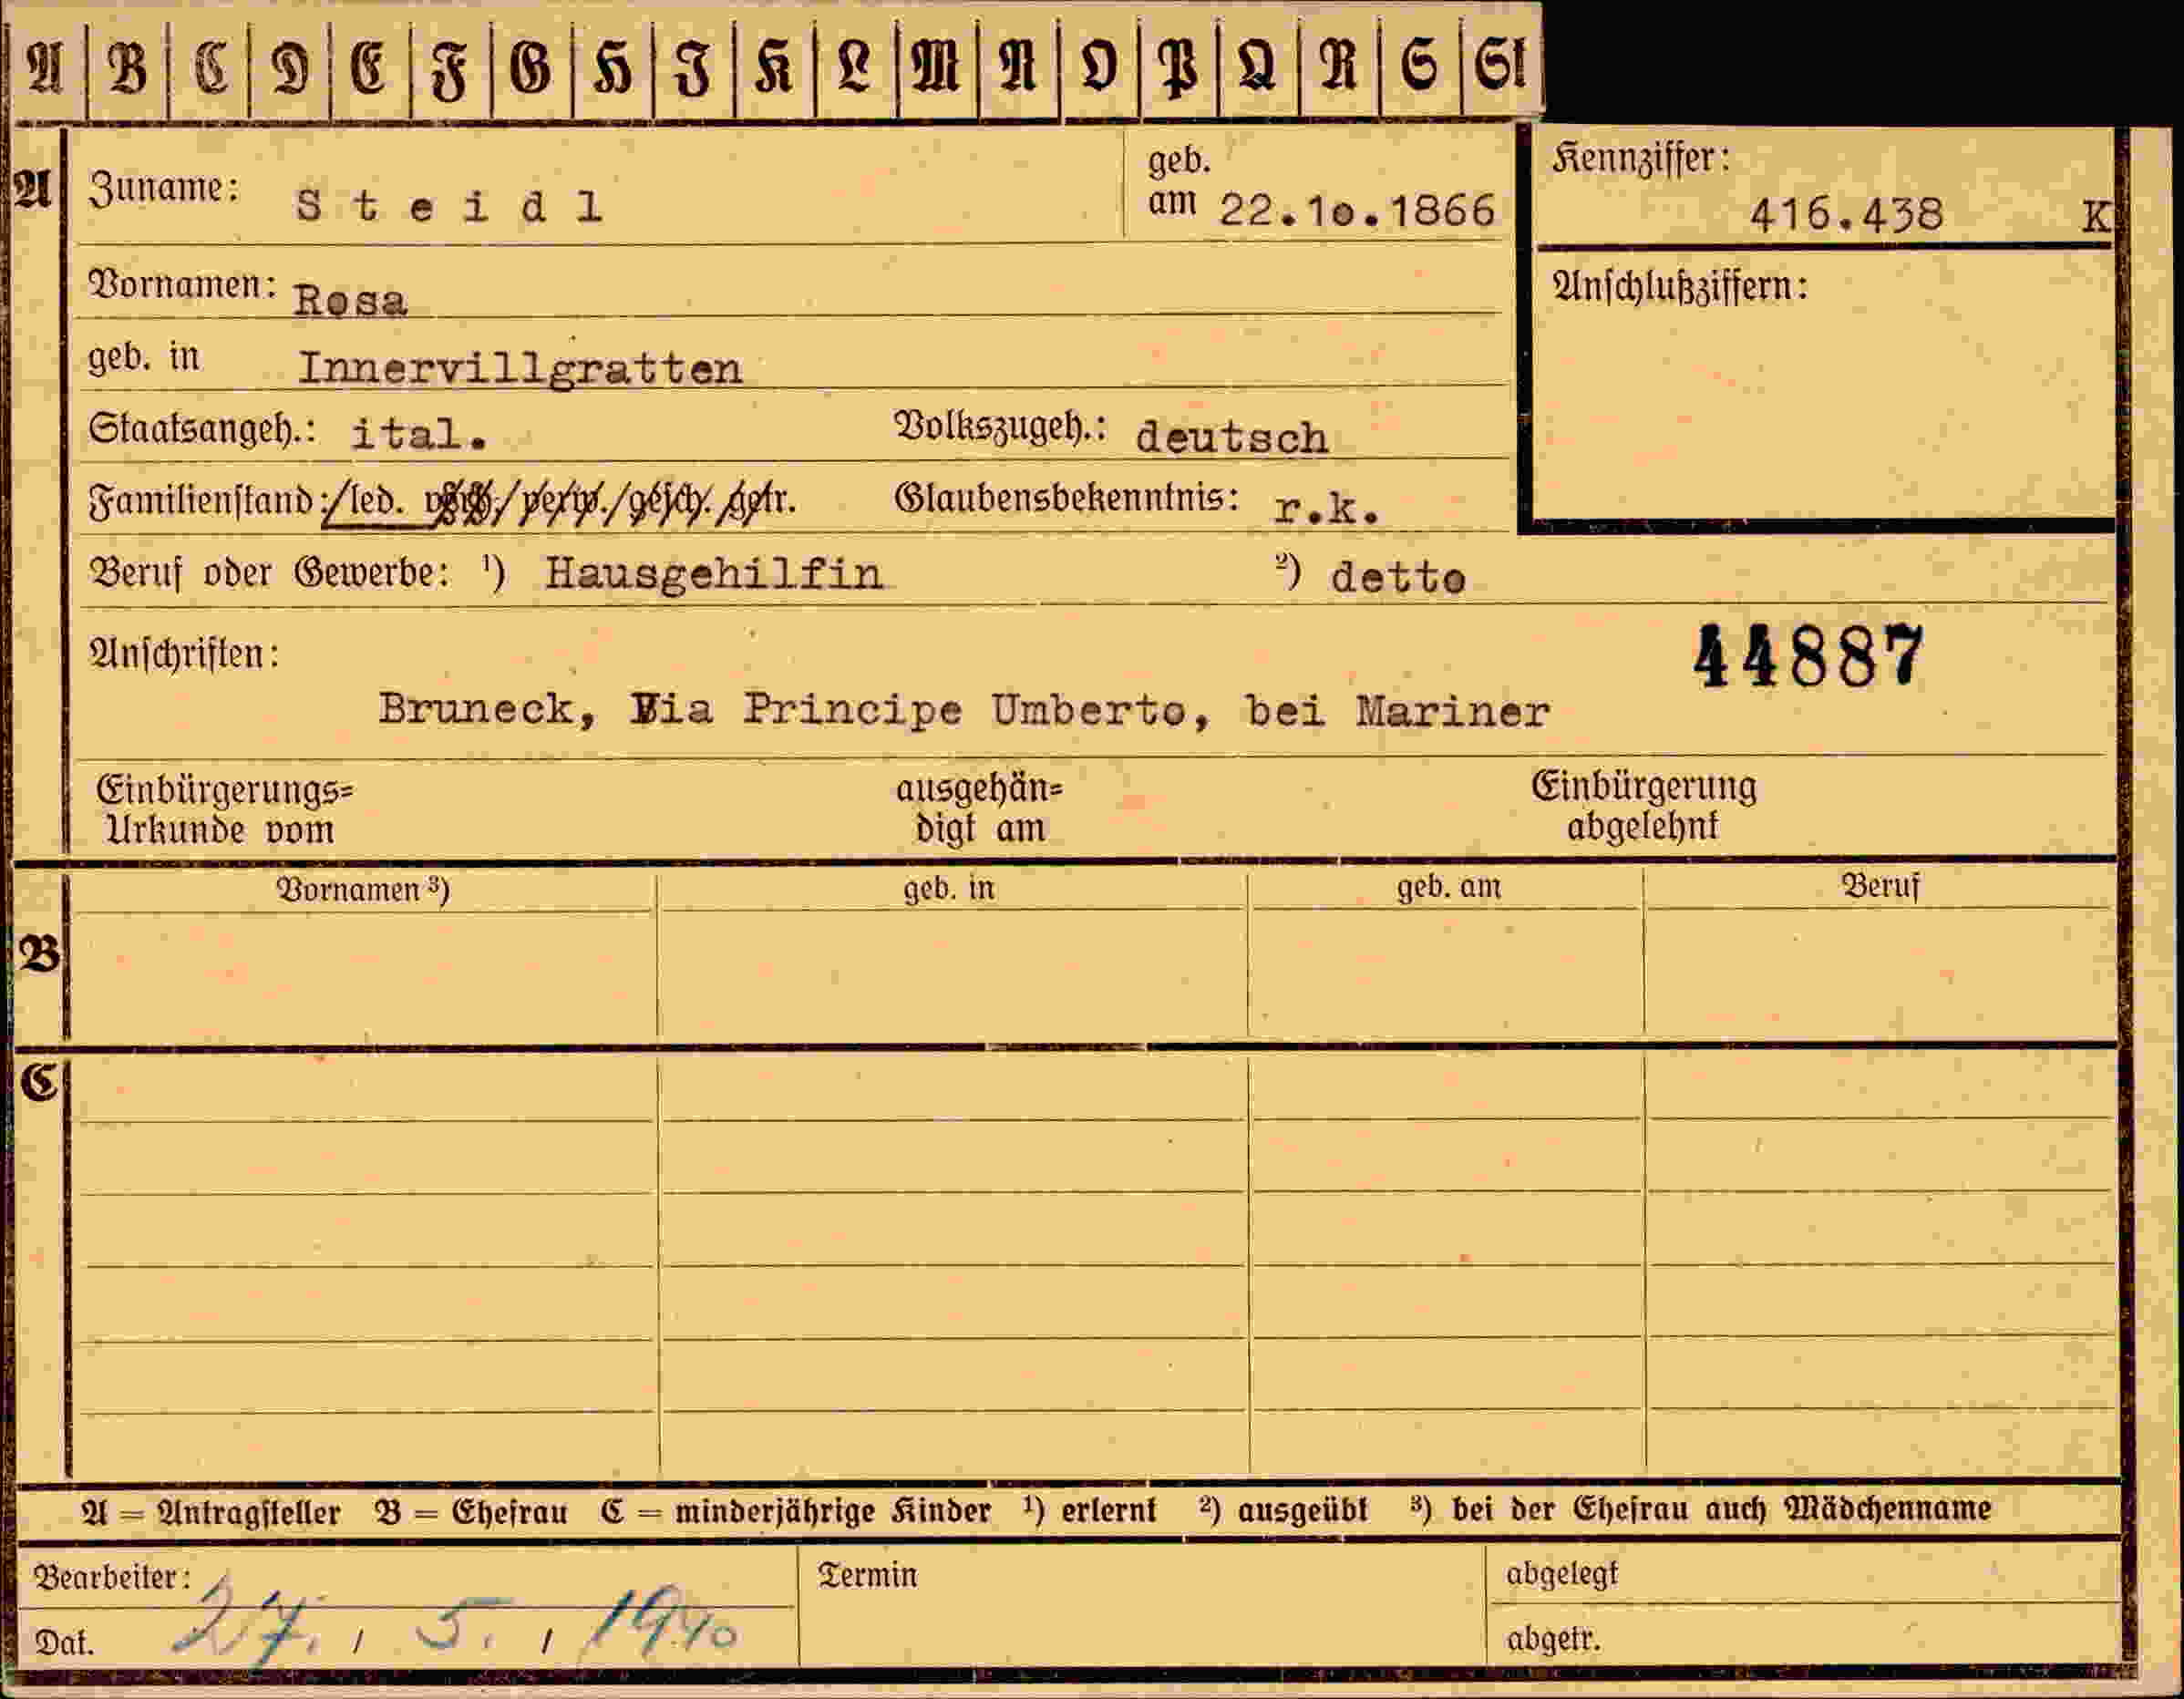 A B C D E F G H I K L M N O P Q R S St
A Zuname: Steidl geb. am 22.10.1866 Kennziffer: 416.438 K
Vornamen: Rosa Anschlußziffern:
geb. in Innervillgratten
Staatsangeh.: ital. Volkszugeh.: deutsch
Familienstand: /led. verh./verw./gesch./getr. Glaubensbekenntnis: r.k.
Beruf oder Gewerbe: ¹) Hausgehilfin ²) detto
Anschriften: 44887
Bruneck, Via Principe Umberto, bei Mariner
Einbürgerungs= ausgehän= Einbürgerung
Urkunde vom digt am abgelehnt
Vornamen ³) geb. in geb. am Beruf
B
C
A = Antragsteller B = Ehefrau C = minderjährige Kinder ¹) erlernt ²) ausgeübt ³) bei der Ehefrau auch Mädchenname
Bearbeiter: Termin abgelegt
Dat. 27. / 5. / 1940 abgetr.